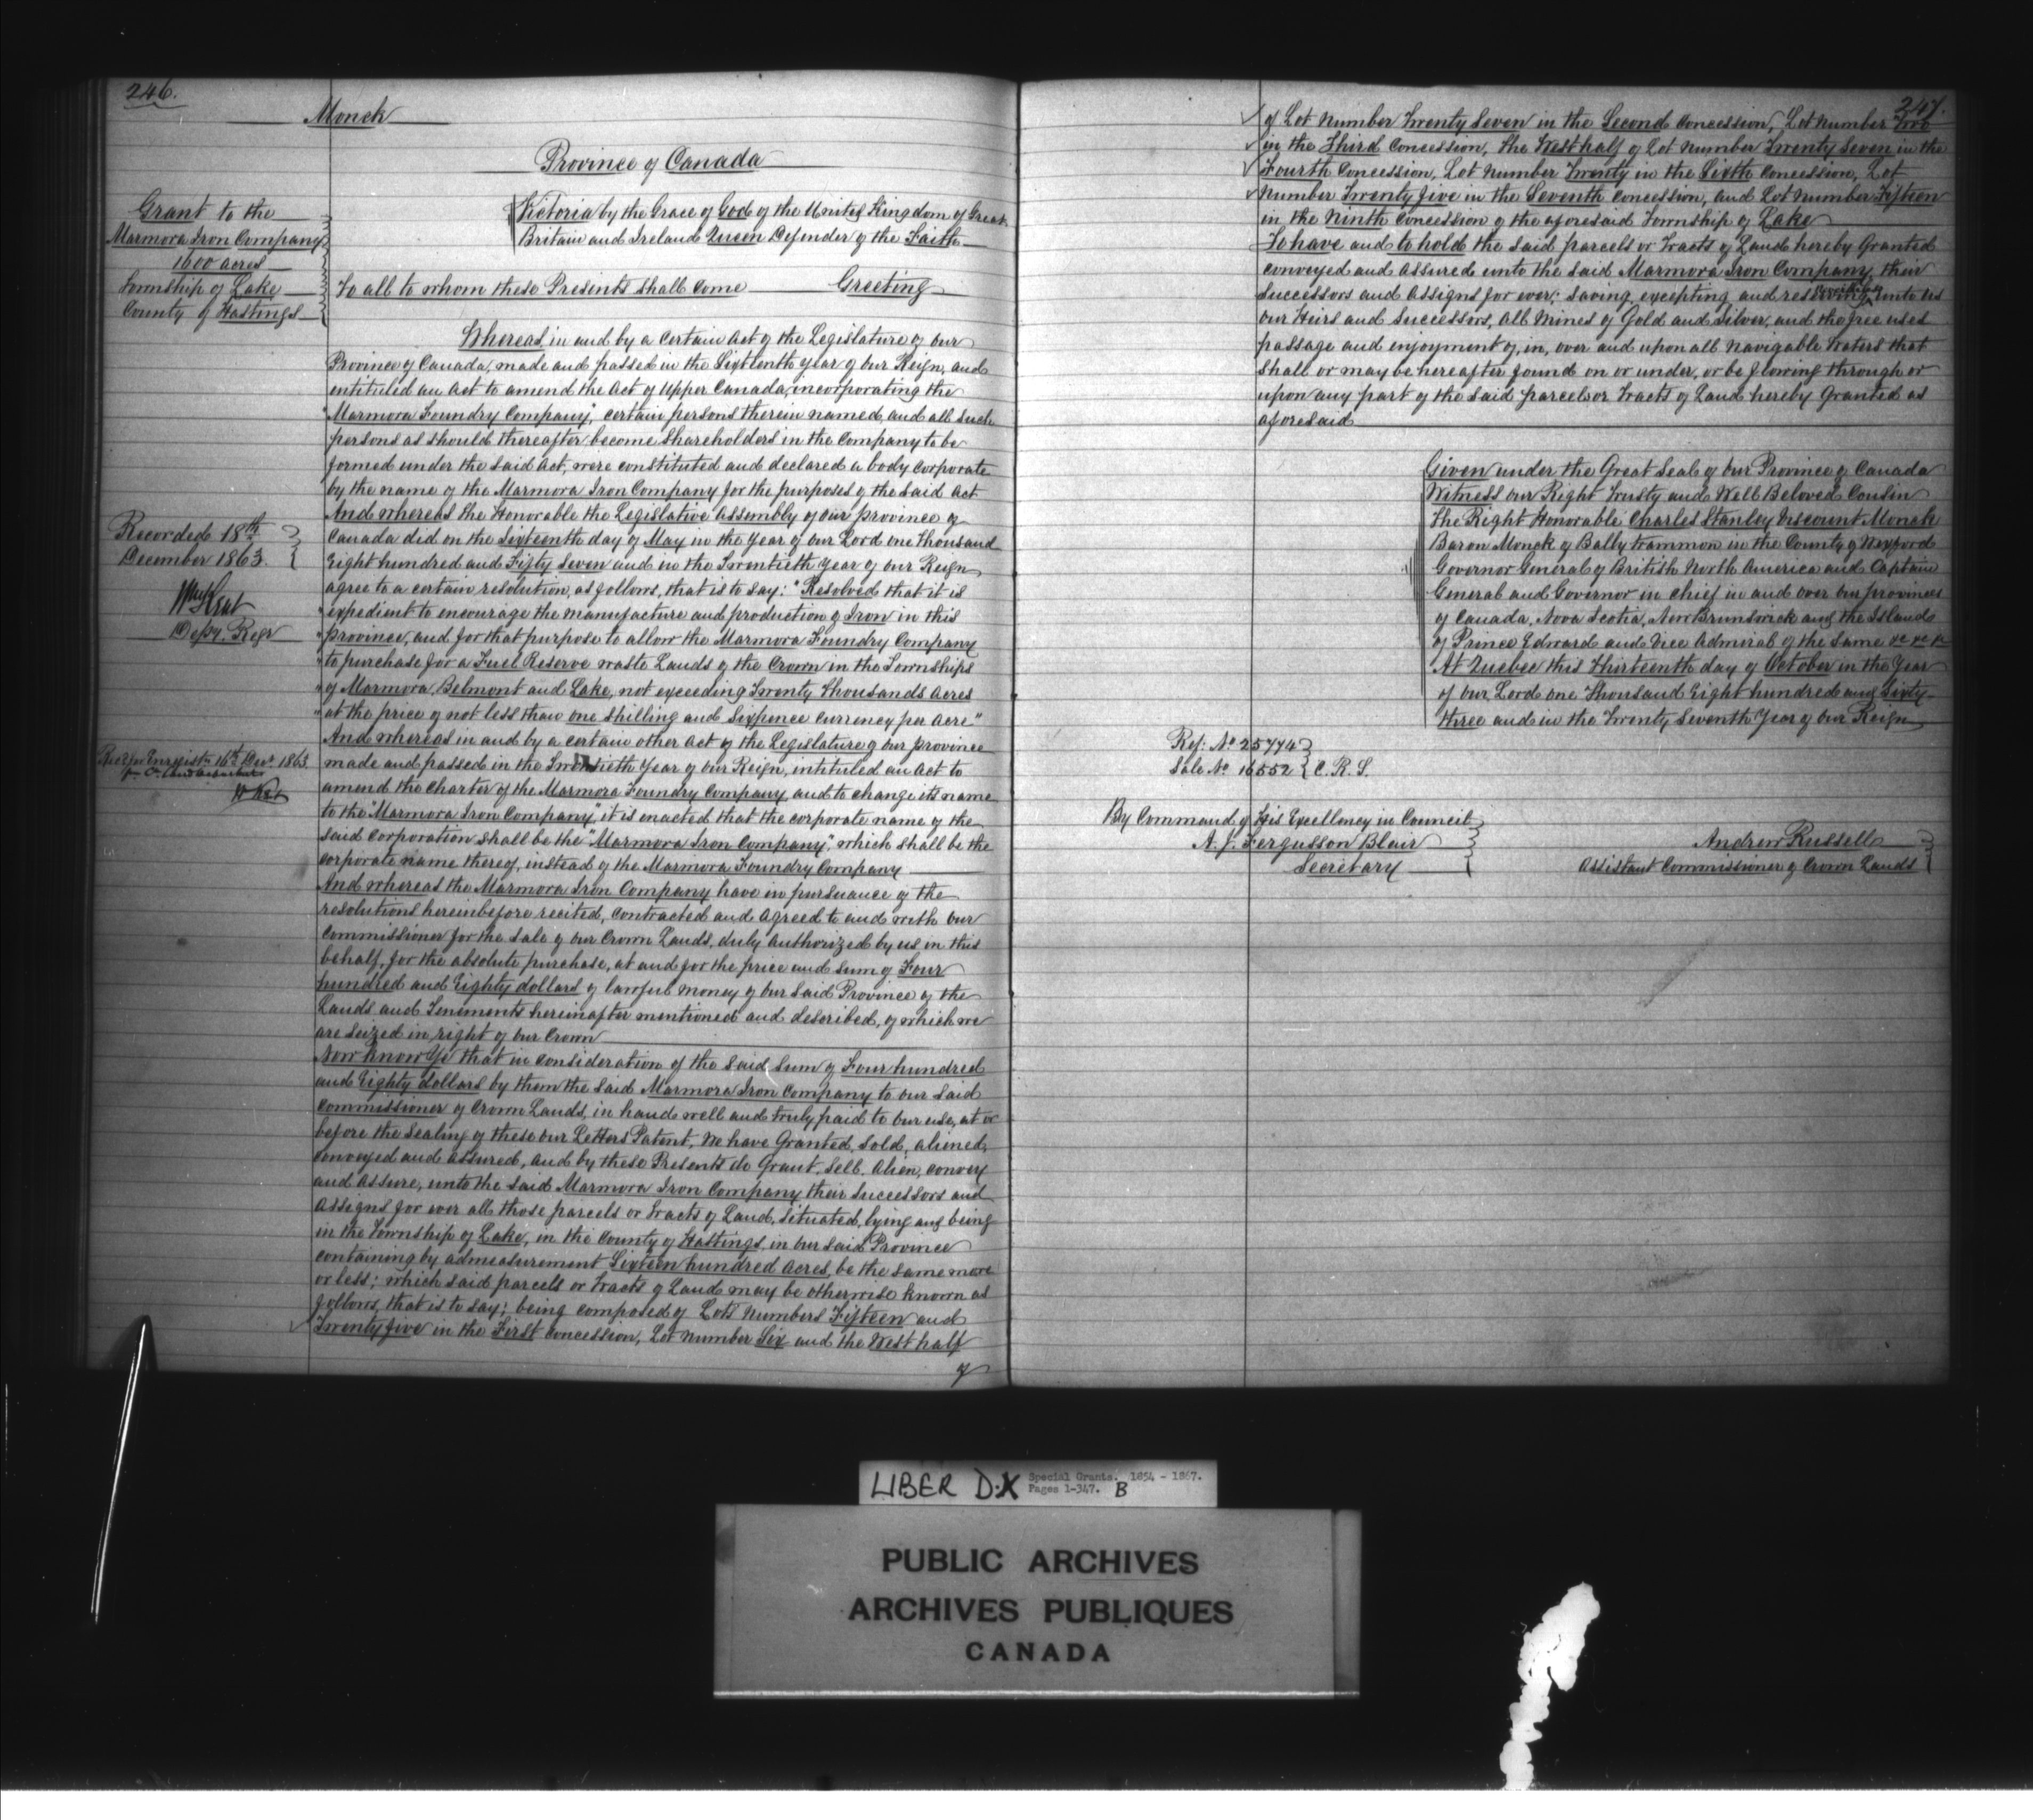 246.
Monck
Province of Canada
Grant to the
Marmora Iron Company
1600 acres
Township of Lake
County of Hastings
Victoria by the Grace of God of the United Kingdom of Great
Britain and Ireland Queen Defender of the Faith
To all to whom these Presents shall come Greeting
Whereas, in and by a certain Act of the Legislature of our
Province of Canada, made and passed in the Sixteenth year of our Reign, and
entituled an Act to amend the Act of Upper Canada, incorporating the
"Marmora Foundry Company", certain persons therein named, and all such
persons as should thereafter become Shareholders in the Company to be
formed under the said Act, were constituted and declared a body corporate
by the name of the Marmora Iron Company for the purposes of the said Act
And whereas the Honorable the Legislative Assembly of our province of
Canada did on the Sixteenth day of May in the Year of our Lord one thousand
Eight hundred and Fifty Seven and in the Twentieth Year of our Reign
agree to a certain resolution, as follows, that is to say: "Resolved that it is
"expedient to encourage the manufacture and production of Iron in this
"province, and for that purpose to allow the Marmora Foundry Company
"to purchase for a Fuel Reserve waste Lands of the Crown in the Townships
"of Marmora, Belmont and Lake, not exceeding Twenty Thousands Acres
"at the price of not less than one Shilling and Sixpence Currency per Acre"
And whereas in and by a certain other Act of the Legislature of our province
made and passed in the Twentieth Year of our Reign, intituled an Act to
amend the Charter of the Marmora Foundry Company, and to change its name
to the "Marmora Iron Company", it is enacted that the corporate name of the
said Corporation shall be the "Marmora Iron Company", which shall be the
corporate name thereof, instead of the Marmora Foundry Company
And whereas the Marmora Iron Company have in pursuance of the
resolutions hereinbefore recited, contracted and agreed to and with our
Commissioner for the Sale of our Crown Lands, duly authorized by us in this
behalf, for the absolute purchase, at and for the price and sum of Four
hundred and Eighty dollars of lawful money of our said Province of the
Lands and Tenements hereinafter mentioned and described, of which we
are seized in right of our Crown
Now Know Ye that in consideration of the said sum of Four hundred
and Eighty dollars by them the said Marmora Iron Company to our said
Commissioner of Crown Lands, in hand well and truly paid to our use, at or
before the Sealing of these our Letters Patent, We have Granted, Sold, aliened,
conveyed and assured, and by these Presents do Grant, Sell, Alien, convey
and Assure, unto the said Marmora Iron Company their Successors and
Assigns for ever all those parcels or Tracts of Land, situated, lying and being
in the Township of Lake, in the County of Hastings, in our said Province
containing by admeasurement Sixteen hundred Acres, be the same more
or less; which said parcels or Tracts of Land may be otherwise known as
follows, that is to say; being composed of Lots Numbers Fifteen and
Twenty five in the First Concession, Lot number Six and the West half
of
Recorded 18th
December 1863.
Wm Kent
Depy. Regr
Recd for Enregistn 16th Decr. 1863
W. Kent
247.
of Lot Number Twenty Seven in the Second Concession, Lot Number Two
in the Third Concession, the West half of Lot Number Twenty Seven in the
Fourth Concession, Lot Number Twenty in the Sixth Concession, Lot
Number Twenty five in the Seventh Concession, and Lot Number Fifteen
in the Ninth Concession of the aforesaid Township of Lake
To have and to hold the said parcels or Tracts of Land hereby Granted
conveyed and Assured unto the said Marmora Iron Company, their
Successors and Assigns for ever; saving, excepting and reserving nevertheless unto us
our Heirs and Successors, all Mines of Gold and Silver, and the free uses
passage and enjoyment of, in, over and upon all navigable Waters that
shall or may be hereafter found on or under, or be flowing through or
upon any part of the said parcels or Tracts of Land hereby Granted as
aforesaid
Given under the Great Seal of our Province of Canada
Witness our Right Trusty and Well Beloved Cousin
The Right Honorable Charles Stanley Viscount Monck
Baron Monck of Ballytrammon in the County of Wexford
Governor General of British North America and Captain
General and Governor in Chief in and over our provinces
of Canada, Nova Scotia, New Brunswick and the Island
of Prince Edward and Vice Admiral of the same &c &c &c
At Quebec this Thirteenth day of October in the Year
of our Lord one Thousand Eight hundred and Sixty
three and in the Twenty Seventh Year of our Reign
Ref: No 25774
Sale No 16552 C.R.S.
By Command of His Excellency in Council
A. J. Fergusson Blair
Secretary
Andrew Russell
Assistant Commissioner of Crown Lands
LIBER D.X Special Grants. 1854 - 1867.
Pages 1-347. B
PUBLIC ARCHIVES
ARCHIVES PUBLIQUES
CANADA